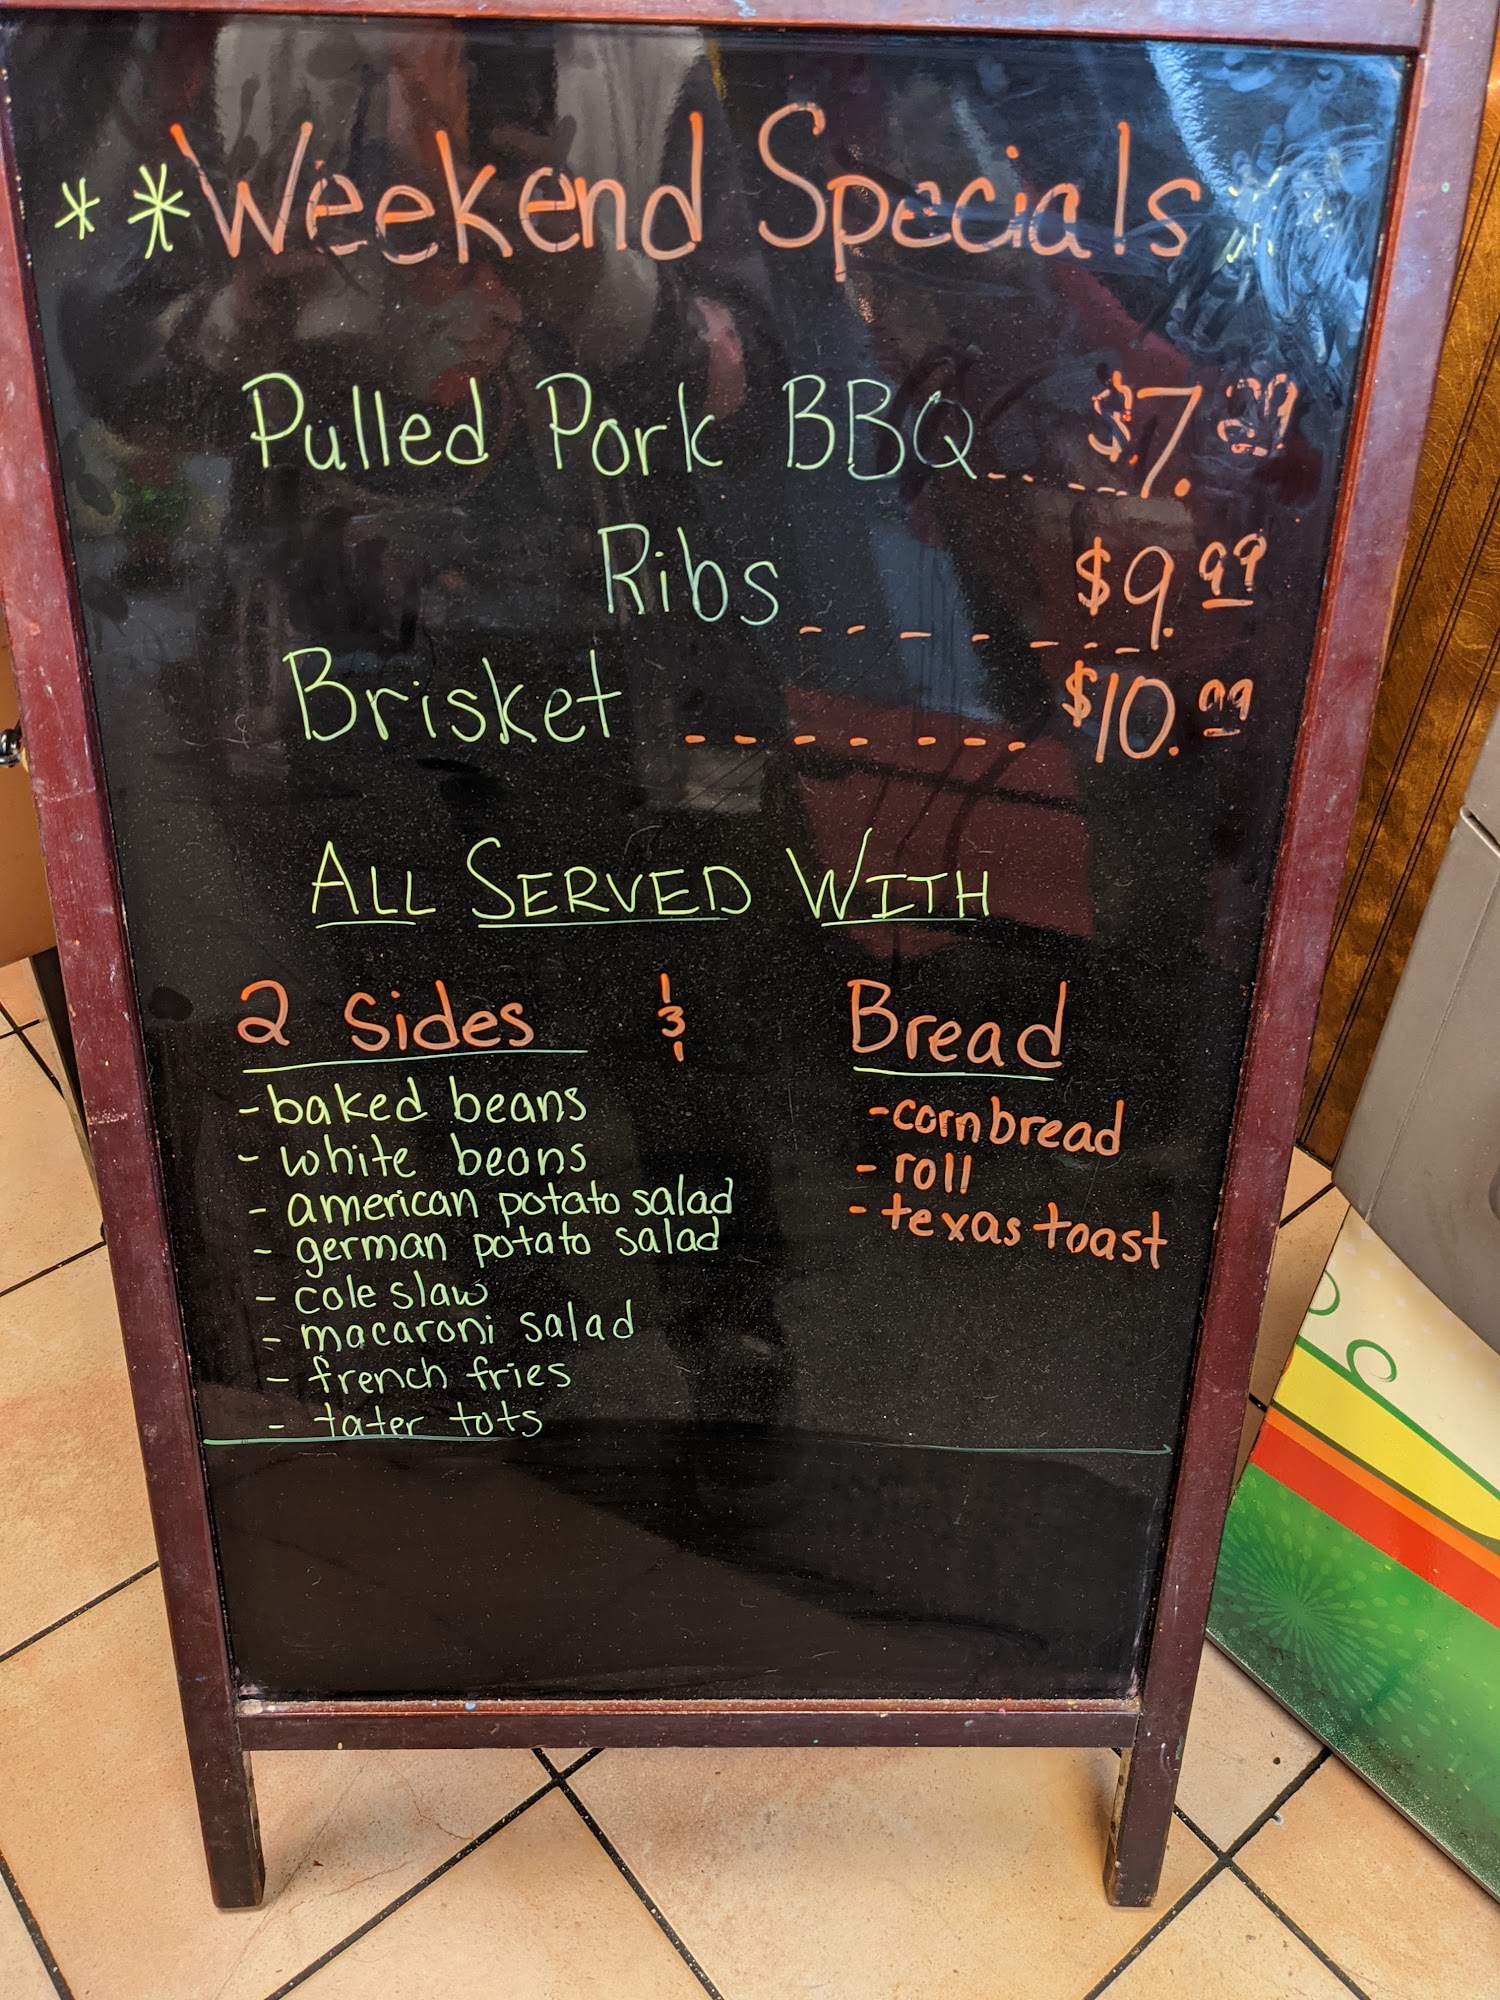 ** Weekend Specials
Pulled Pork BBQ ----- $7.
Ribs ------- $9.99
Brisket ------- $10.99
ALL SERVED WITH
2 sides & Bread
- baked beans
- white beans
- american potato salad
- german potato salad
- cole slaw
- macaroni salad
- french fries
- tater tots
- cornbread
- roll
- texas toast